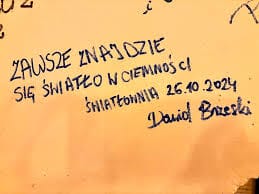 ZAWSZE ZNAJDZIE
SIĘ ŚWIATŁO W CIEMNOŚCI
ŚWIATŁOWNIA 26.10.2024
Dawid Brzeski